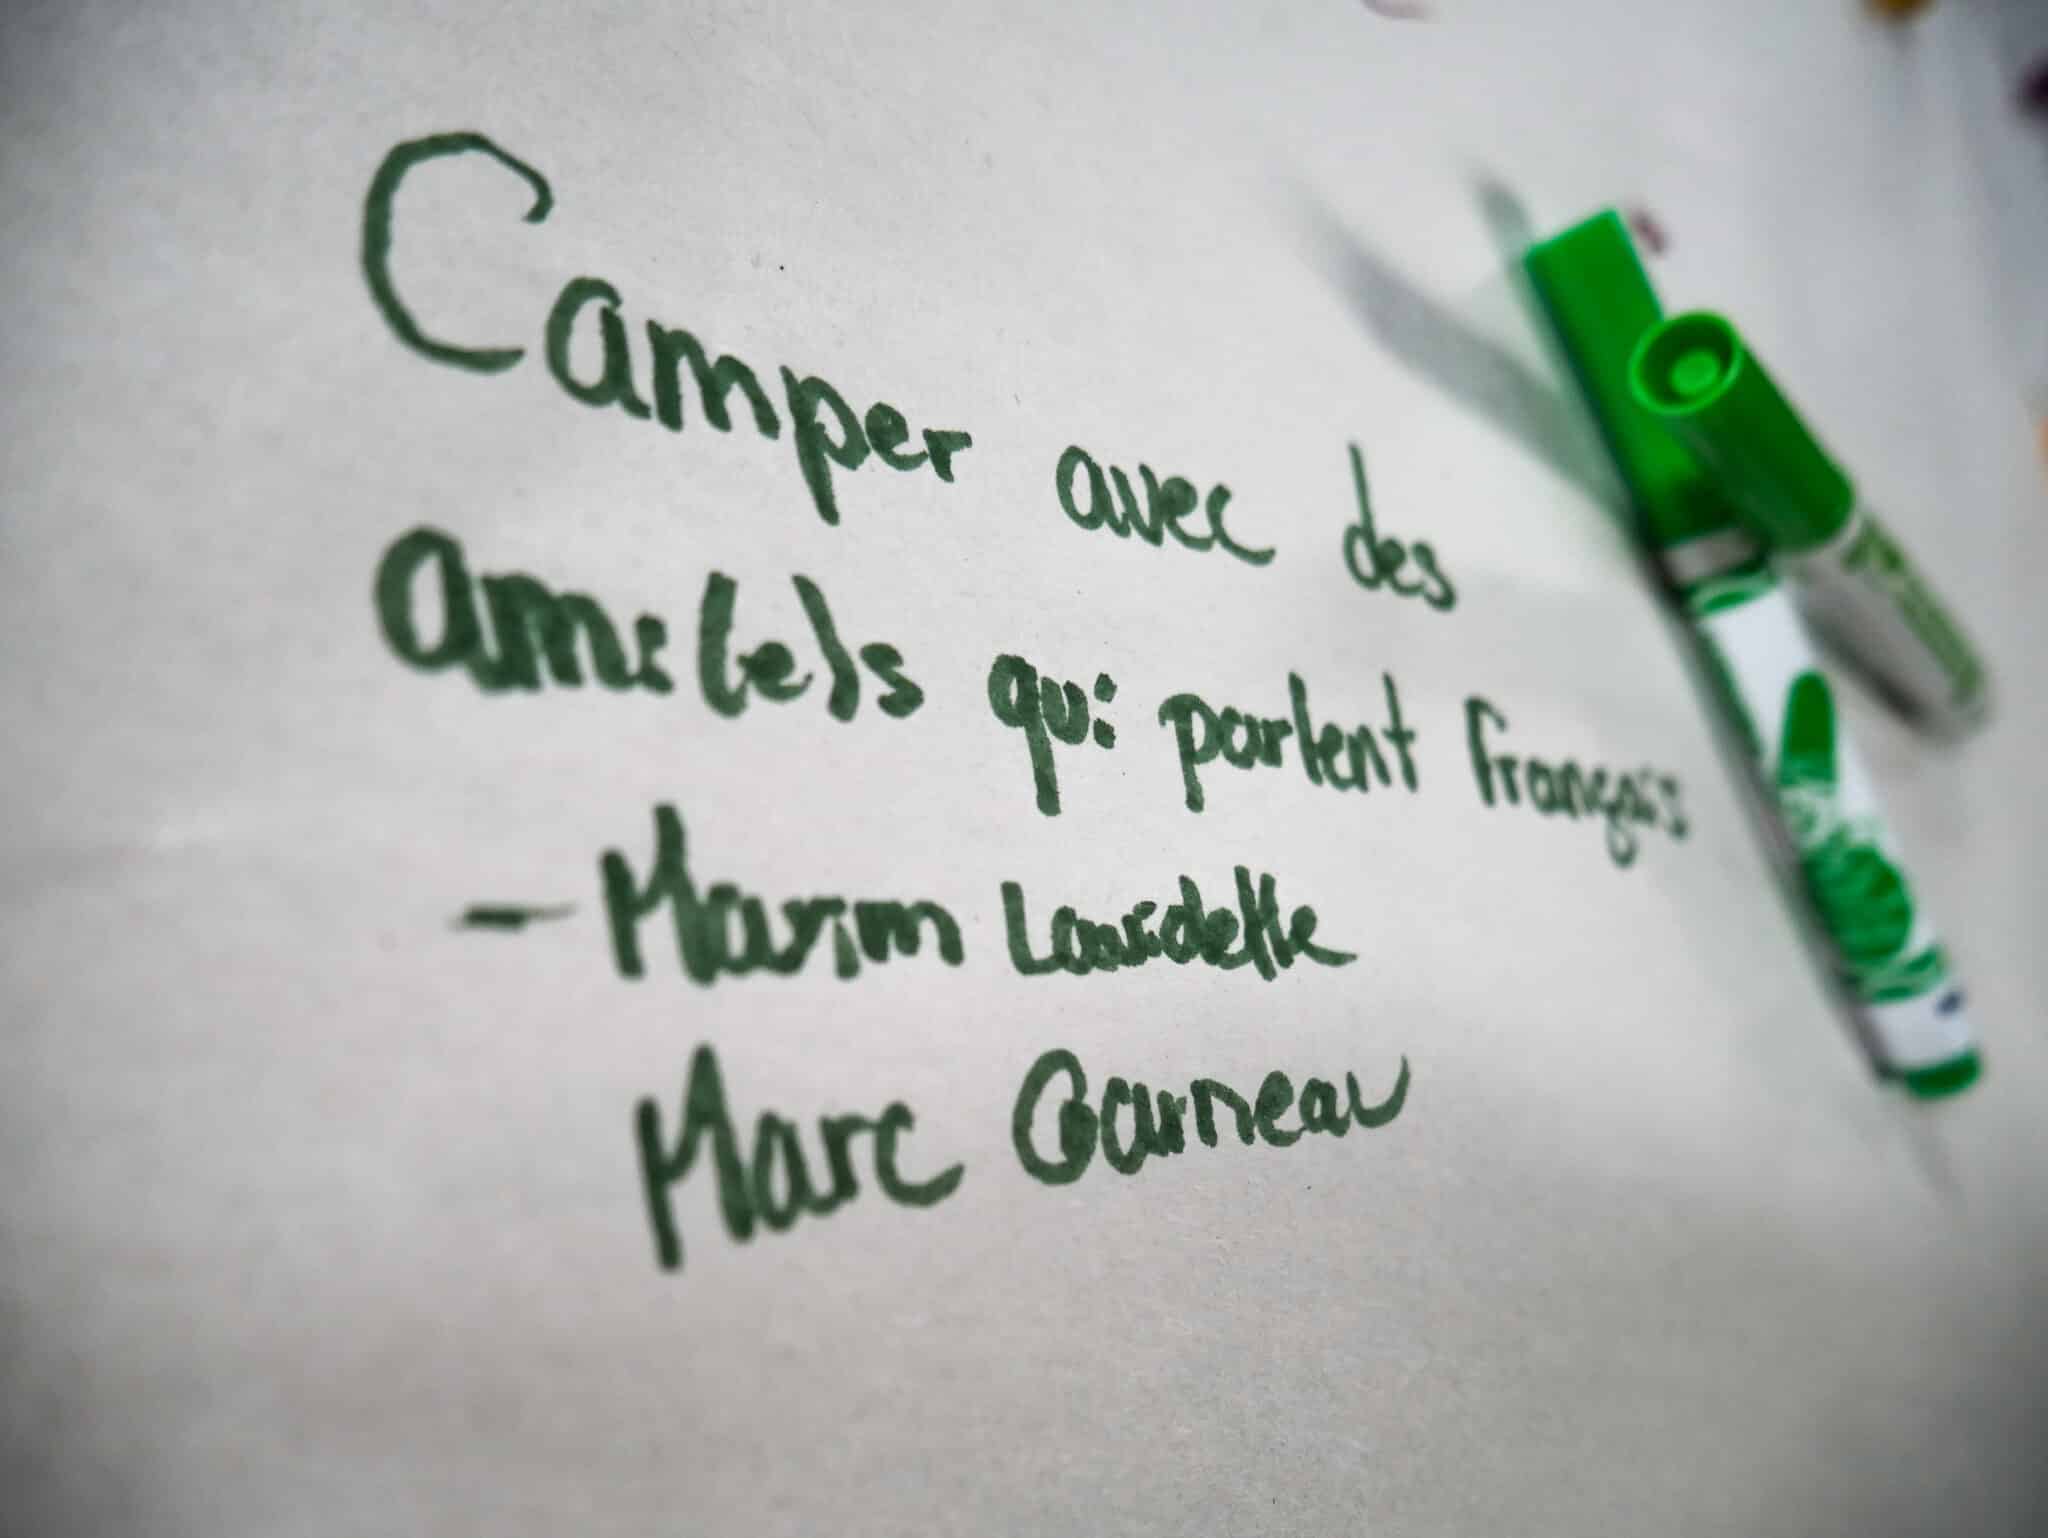 Camper avec des
ami(e)s qui parlent français
- Maxim Lauridelle
Marc Garneau